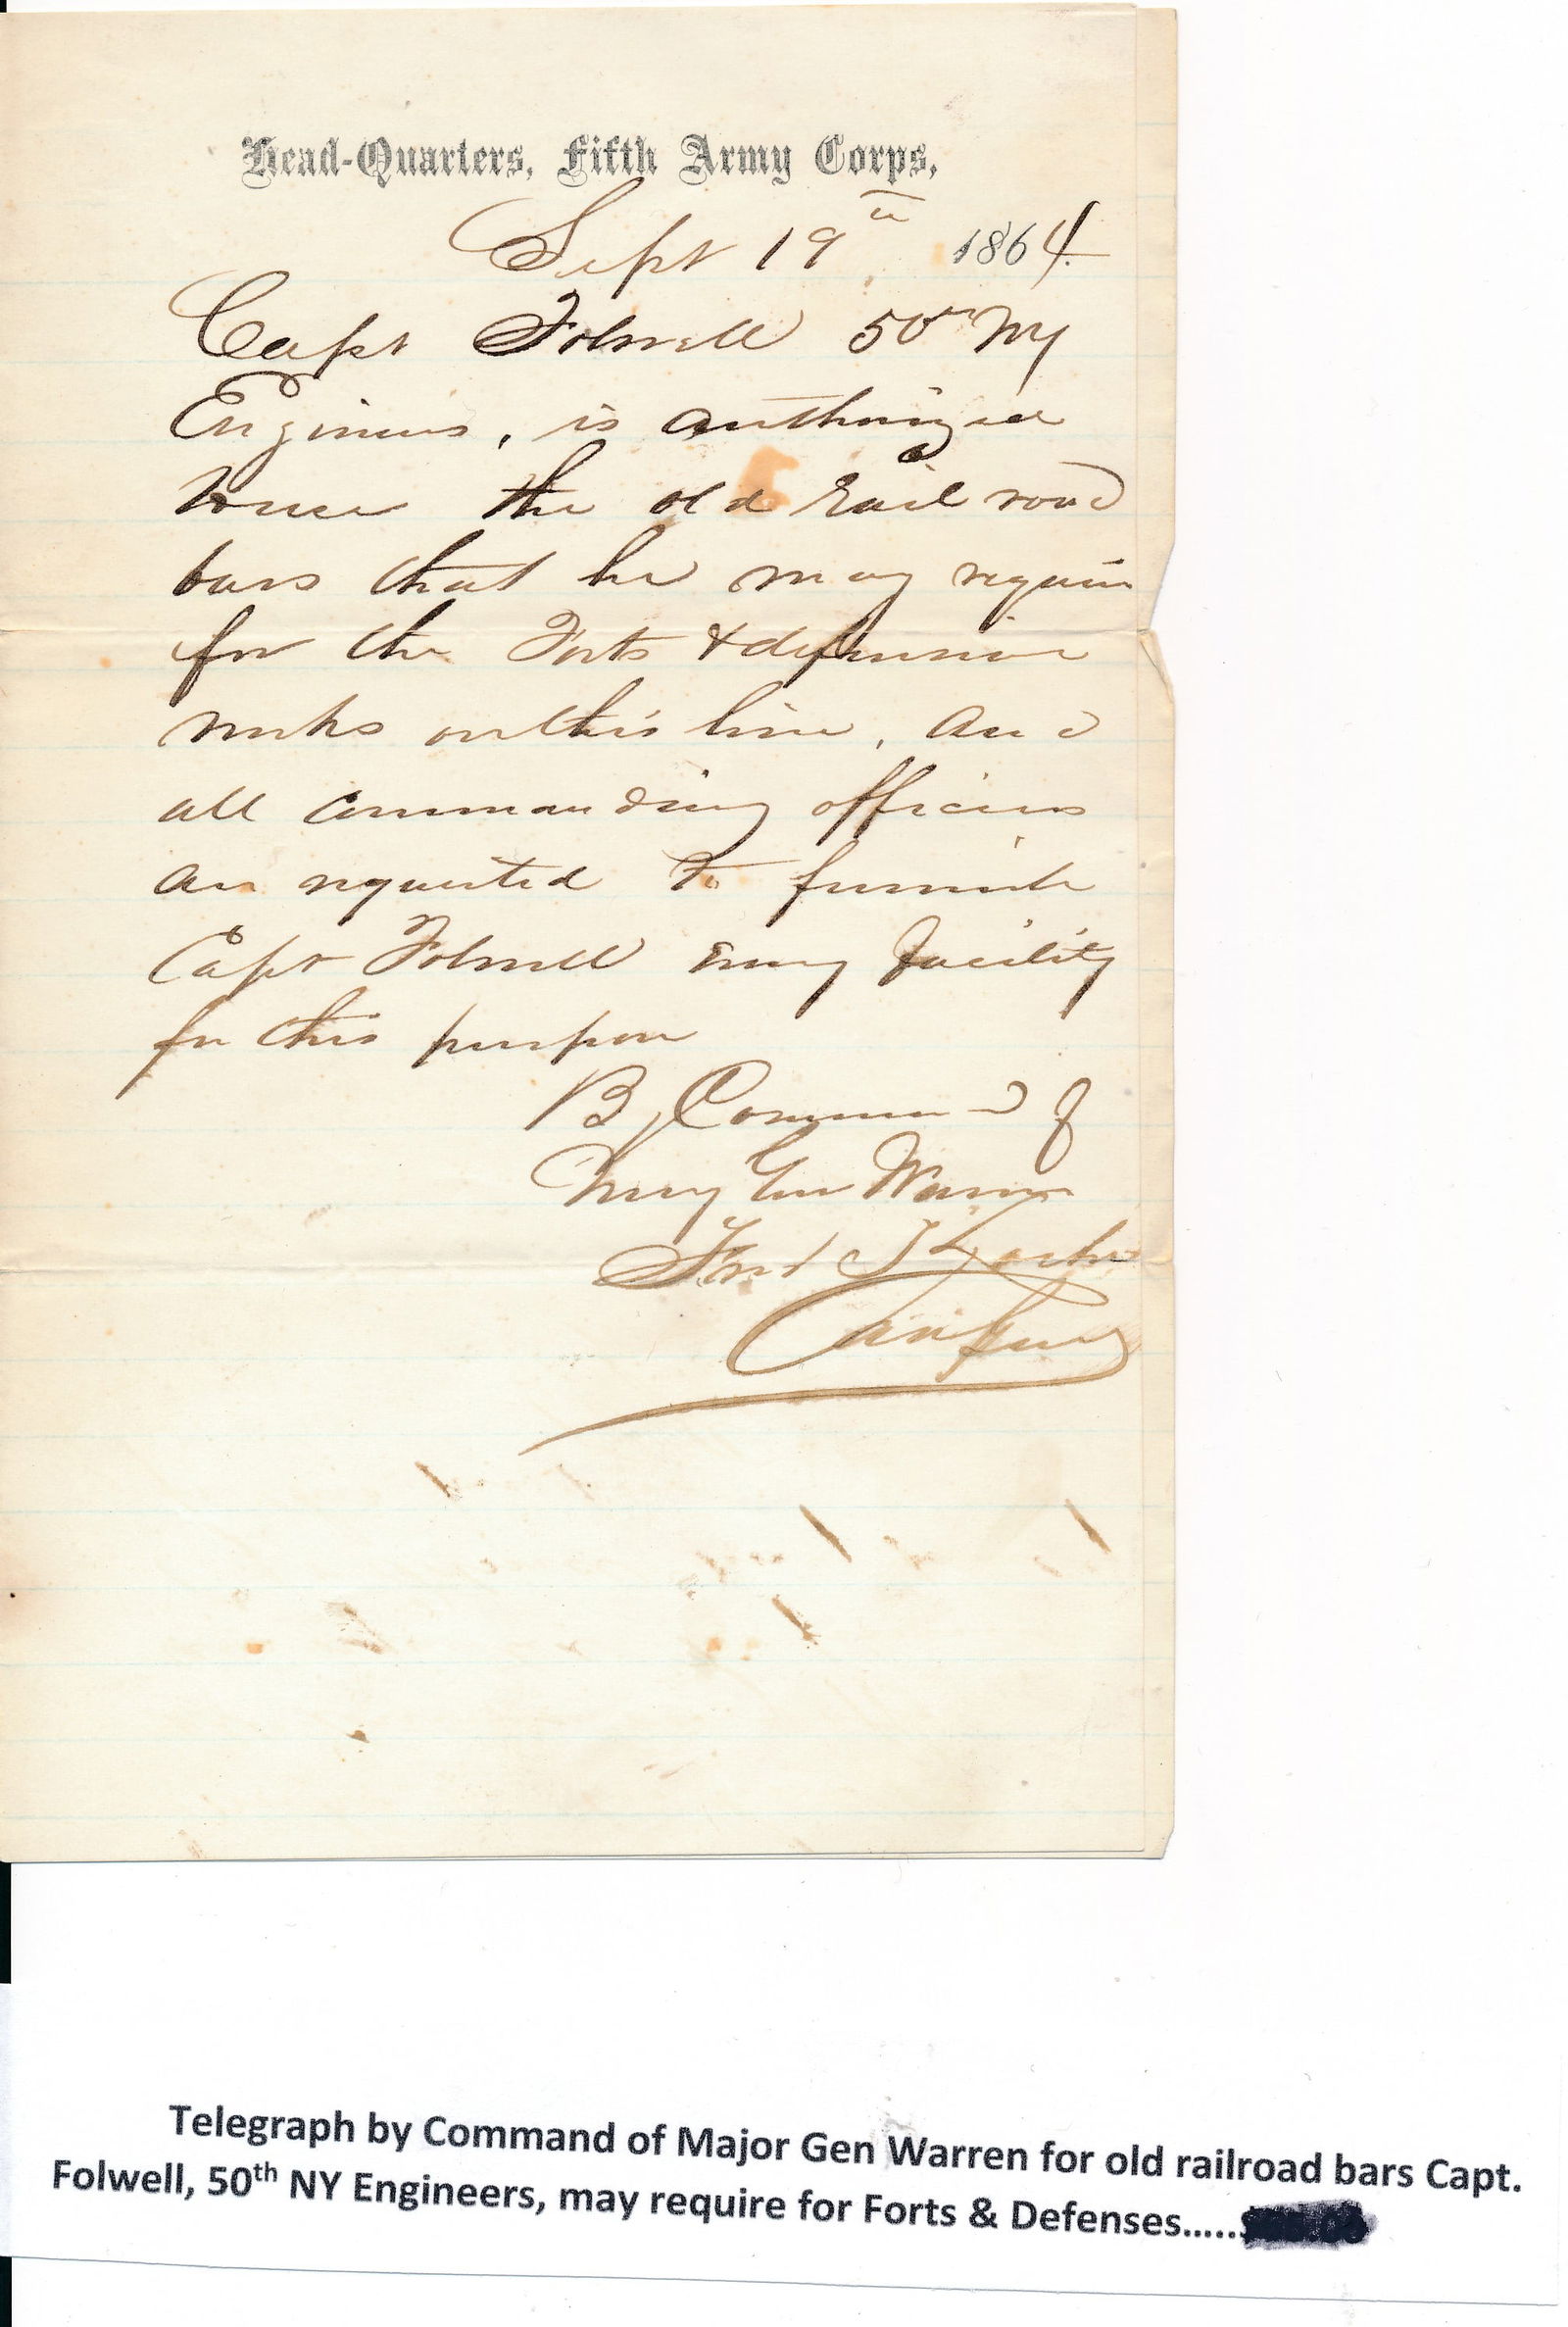 Head-Quarters, Fifth Army Corps,
Sept 19th 1864.
Capt Folwell 50th NY
Engineers, is authorized
to use the old Rail road
bars that he may require
for the Forts & defensive
works on this line, and
all commanding officers
are requested to furnish
Capt Folwell every facility
for this purpose
By Command of
Maj Gen Warren
Fred T Locke
Telegraph by Command of Major Gen Warren for old railroad bars Capt.
Folwell, 50th NY Engineers, may require for Forts & Defenses.....